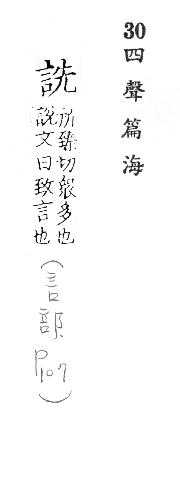 30四聲篇海
詵 所臻切眾多也
說文曰致言也
(言部 P107)